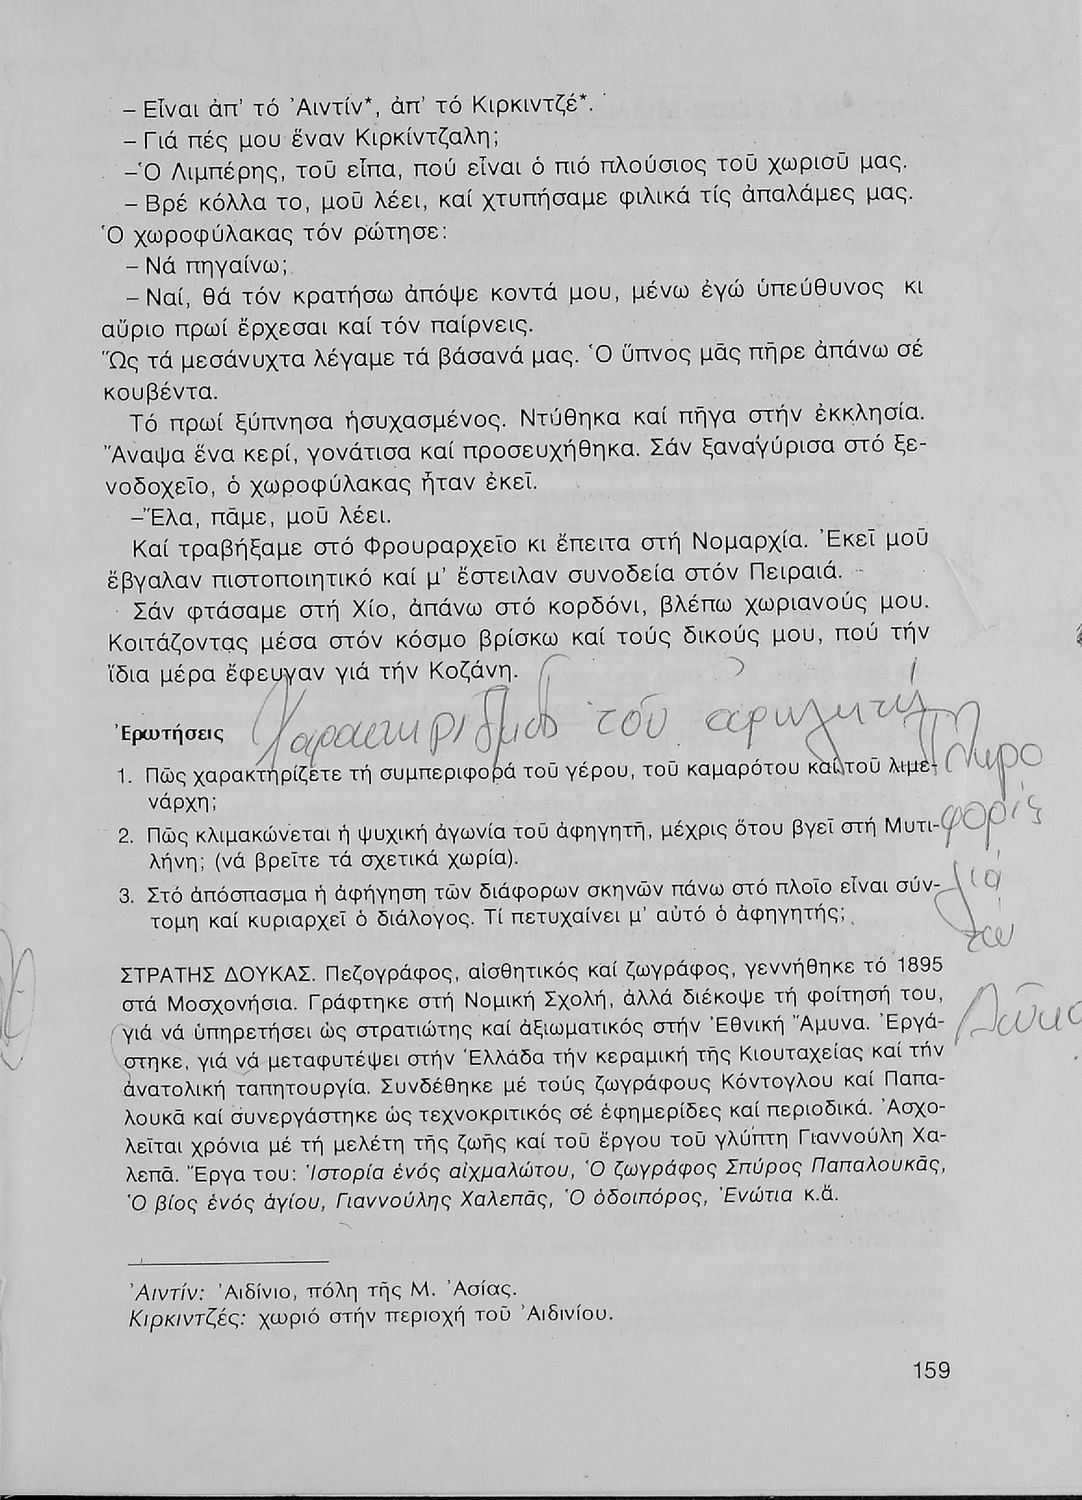 – Εἶναι ἀπ' τό Ἀιντίν*, ἀπ' τό Κιρκιντζέ*.
– Γιά πές μου ἕναν Κιρκίντζαλη;
– Ὁ Λιμπέρης, τοῦ εἶπα, πού εἶναι ὁ πιό πλούσιος τοῦ χωριοῦ μας.
– Βρέ κόλλα το, μοῦ λέει, καί χτυπήσαμε φιλικά τίς ἀπαλάμες μας.
Ὁ χωροφύλακας τόν ρώτησε:
– Νά πηγαίνω;
– Ναί, θά τόν κρατήσω ἀπόψε κοντά μου, μένω ἐγώ ὑπεύθυνος κι
αὔριο πρωί ἔρχεσαι καί τόν παίρνεις.
Ὥς τά μεσάνυχτα λέγαμε τά βάσανά μας. Ὁ ὕπνος μᾶς πῆρε ἀπάνω σέ
κουβέντα.
Τό πρωί ξύπνησα ἡσυχασμένος. Ντύθηκα καί πῆγα στήν ἐκκλησία.
Ἄναψα ἕνα κερί, γονάτισα καί προσευχήθηκα. Σάν ξαναγύρισα στό ξε-
νοδοχεῖο, ὁ χωροφύλακας ἦταν ἐκεῖ.
– Ἔλα, πᾶμε, μοῦ λέει.
Καί τραβήξαμε στό Φρουραρχεῖο κι ἔπειτα στή Νομαρχία. Ἐκεῖ μοῦ
ἔβγαλαν πιστοποιητικό καί μ' ἔστειλαν συνοδεία στόν Πειραιά.
Σάν φτάσαμε στή Χίο, ἀπάνω στό κορδόνι, βλέπω χωριανούς μου.
Κοιτάζοντας μέσα στόν κόσμο βρίσκω καί τούς δικούς μου, πού τήν
ἴδια μέρα ἔφευγαν γιά τήν Κοζάνη.
Χαρακτηρισμός τοῦ ἀφηγητή
Ἐρωτήσεις
1. Πῶς χαρακτηρίζετε τή συμπεριφορά τοῦ γέρου, τοῦ καμαρότου καί τοῦ λιμε-
νάρχη;
2. Πῶς κλιμακώνεται ἡ ψυχική ἀγωνία τοῦ ἀφηγητῆ, μέχρις ὅτου βγεῖ στή Μυτι-
λήνη; (νά βρεῖτε τά σχετικά χωρία).
3. Στό ἀπόσπασμα ἡ ἀφήγηση τῶν διάφορων σκηνῶν πάνω στό πλοῖο εἶναι σύν-
τομη καί κυριαρχεῖ ὁ διάλογος. Τί πετυχαίνει μ' αὐτό ὁ ἀφηγητής;
Πληρο
φορίς
γιά
τόν
Δούκα
ΣΤΡΑΤΗΣ ΔΟΥΚΑΣ. Πεζογράφος, αἰσθητικός καί ζωγράφος, γεννήθηκε τό 1895
στά Μοσχονήσια. Γράφτηκε στή Νομική Σχολή, ἀλλά διέκοψε τή φοίτησή του,
γιά νά ὑπηρετήσει ὡς στρατιώτης καί ἀξιωματικός στήν Ἐθνική Ἄμυνα. Ἐργά-
στηκε, γιά νά μεταφυτέψει στήν Ἑλλάδα τήν κεραμική τῆς Κιουταχείας καί τήν
ἀνατολική ταπητουργία. Συνδέθηκε μέ τούς ζωγράφους Κόντογλου καί Παπα-
λουκᾶ καί συνεργάστηκε ὡς τεχνοκριτικός σέ ἐφημερίδες καί περιοδικά. Ἀσχο-
λεῖται χρόνια μέ τή μελέτη τῆς ζωῆς καί τοῦ ἔργου τοῦ γλύπτη Γιαννούλη Χα-
λεπᾶ. Ἔργα του: Ἱστορία ἑνός αἰχμαλώτου, Ὁ ζωγράφος Σπύρος Παπαλουκᾶς,
Ὁ βίος ἑνός ἁγίου, Γιαννούλης Χαλεπᾶς, Ὁ ὁδοιπόρος, Ἐνώτια κ.ἄ.
Ἀιντίν: Ἀιδίνιο, πόλη τῆς Μ. Ἀσίας.
Κιρκιντζές: χωριό στήν περιοχή τοῦ Ἀιδινίου.
159